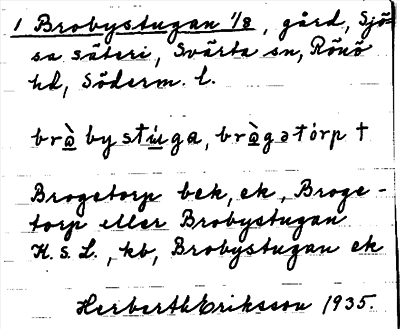 1 Brobystugan 1/8, gård, Sjö
sa säteri, Svärta sn, Rönö
hd, Söderm. l.
brà̲bystú̲ga, brà̲gətórp †
Brogetorp bek, ek, Broge-
torp eller Brobystugan
H.S.L., kb, Brobystugan ek
Herberth Eriksson 1935.